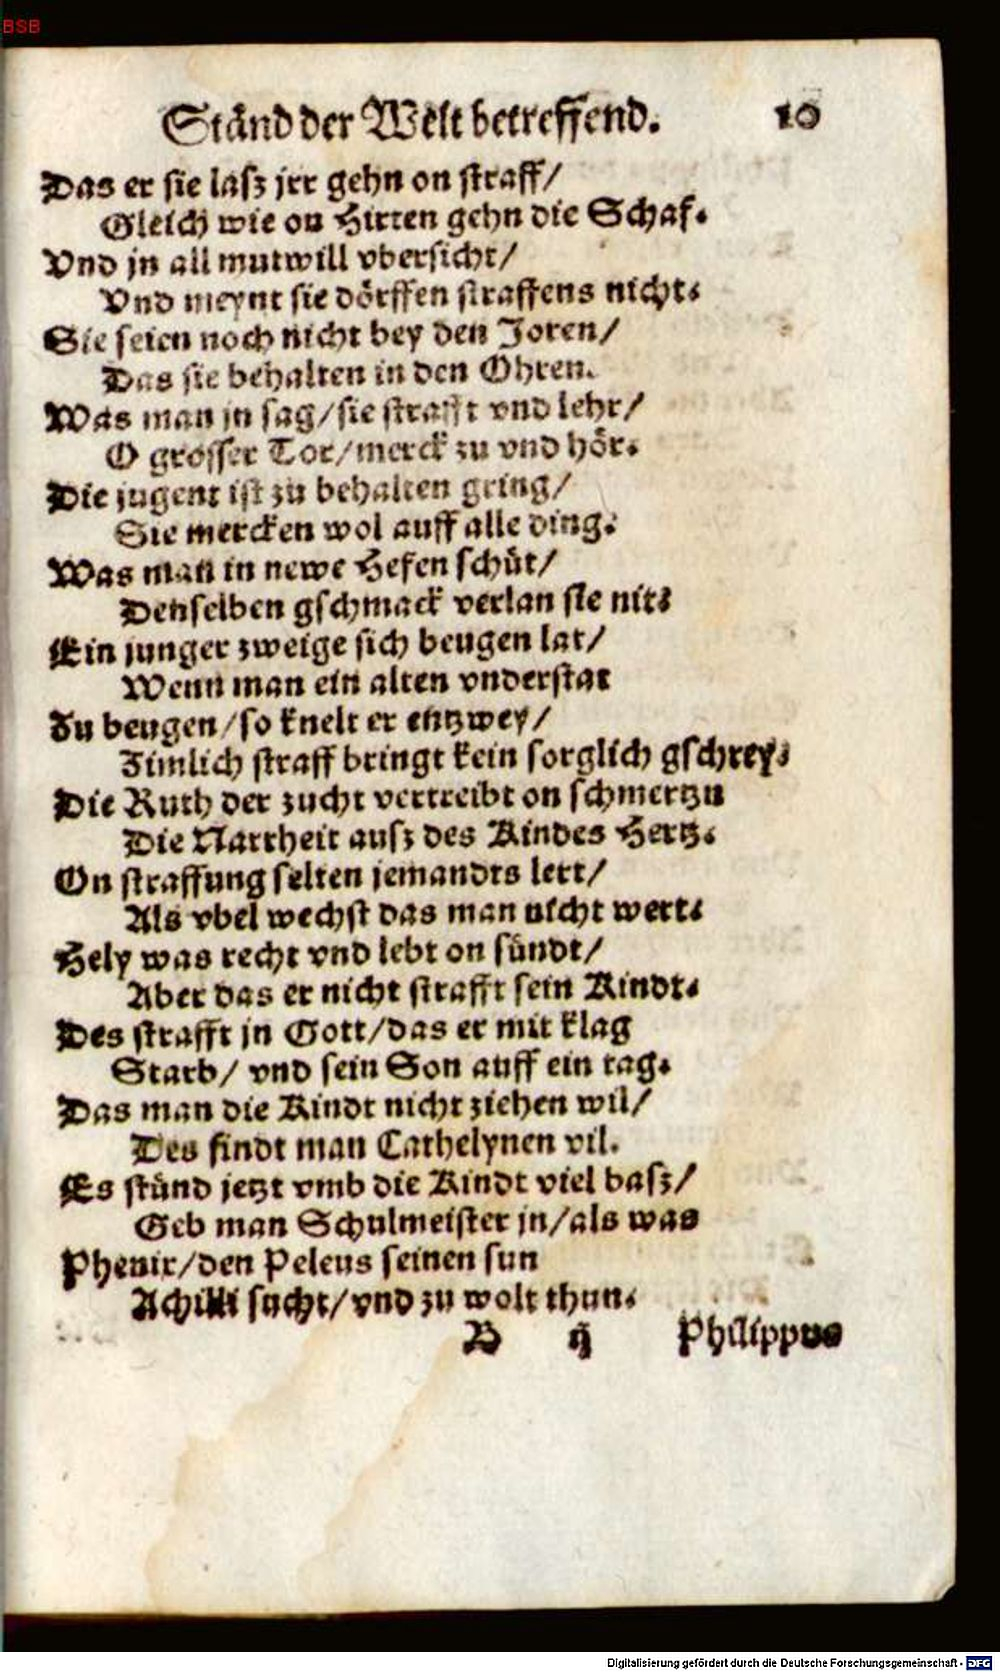 BSB
Ständ der Welt betreffend. 10
Das er sie lasz jrr gehn on straff/
Gleich wie on Hirten gehn die Schaf.
Vnd jn all mutwill vbersicht/
Vnd meynt sie dörffen straffens nicht.
Sie seien noch nicht bey den Joren/
Das sie behalten in den Ohren.
Was man jn sag/sie strafft vnd lehr/
O grosser Tor/merck zu vnd hör.
Die jugent ist zu behalten gring/
Sie mercken wol auff alle ding.
Was man in newe Hefen schüt/
Denselben gschmack verlan sie nit.
Ein junger zweige sich beugen lat/
Wenn man ein alten vnderstat
Zu beugen/so knelt er entzwey/
Zimlich straff bringt kein sorglich gschrey.
Die Ruth der zucht vertreibt on schmertzn
Die Narrheit ausz des Kindes Hertz.
On straffung selten jemandts lert/
Als vbel wechst das man nicht wert.
Hely was recht vnd lebt on sündt/
Aber das er nicht strafft sein Kindt.
Des strafft jn Gott/das er mit klag
Starb/ vnd sein Son auff ein tag.
Das man die Kindt nicht ziehen wil/
Des findt man Cathelynen vil.
Es stünd jetzt vmb die Kindt viel basz/
Geb man Schulmeister jn/als was
Phenix/den Peleus seinen sun
Achilli sucht/vnd zu wolt thun.
B ij Philippus
Digitalisierung gefördert durch die Deutsche Forschungsgemeinschaft - DFG